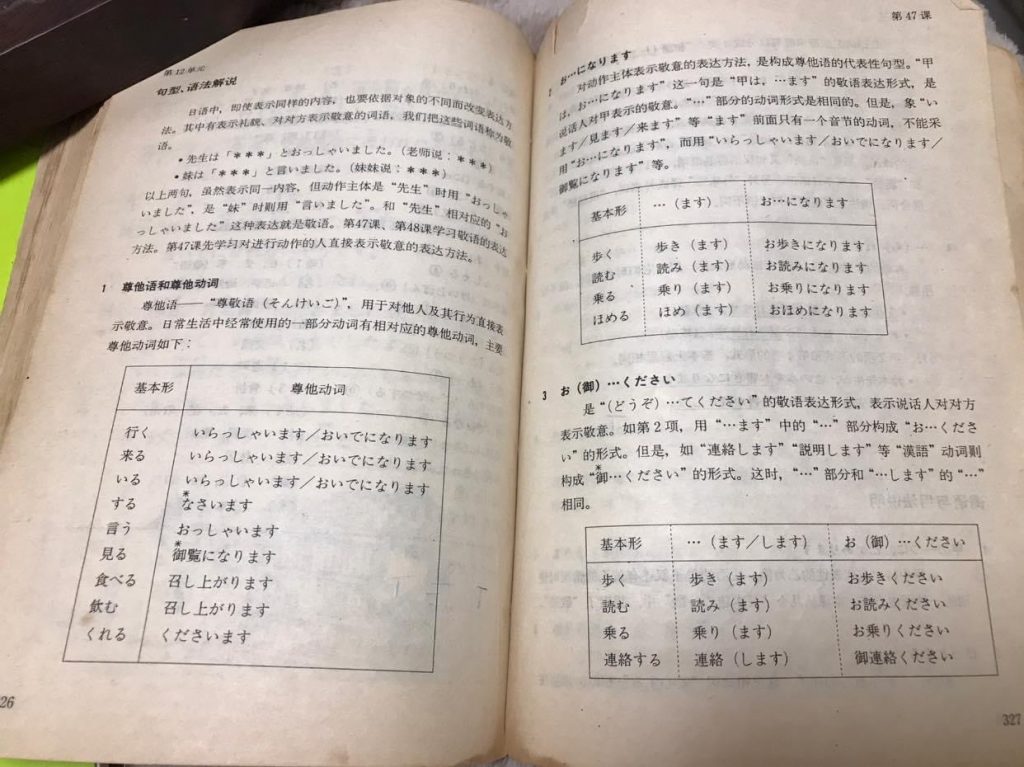 第12单元
句型、语法解说
日语中，即使表示同样的内容，也要依据对象的不同而改变表达方
法。其中有表示礼貌、对对方表示敬意的词语，我们把这些词语称为敬
语。
• 先生は「＊＊＊」とおっしゃいました。(老师说：＊＊＊)
• 妹は「＊＊＊」と言いました。(妹妹说：＊＊＊)
以上两句，虽然表示同一内容，但动作主体是“先生”时用“おっしゃ
いました”，是“妹”时则用“言いました”。和“先生”相对应的“お
っしゃいました”这种表达就是敬语。第47课、第48课学习敬语的表达
方法。第47课先学习对进行动作的人直接表示敬意的表达方法。
1 尊他语和尊他动词
尊他语——“尊敬语（そんけいご）”，用于对他人及其行为直接表
示敬意。日常生活中经常使用的一部分动词有相对应的尊他动词，主要
尊他动词如下：
基本形 尊他动词
行く いらっしゃいます／おいでになります
来る いらっしゃいます／おいでになります
いる いらっしゃいます／おいでになります
する なさいます
言う おっしゃいます
見る 御覧になります
食べる 召し上がります
飲む 召し上がります
くれる くださいます
26
第47课
お…になります
对动作主体表示敬意的表达方法，是构成尊他语的代表性句型。“甲
は、お…になります”这一句是“甲は、…ます”的敬语表达形式，是
说话人对甲表示的敬意。“…”部分的动词形式是相同的。但是，象“い
ます／見ます／来ます”等“ます”前面只有一个音节的动词，不能采
用“お…になります”，而用“いらっしゃいます／おいでになります／
御覧になります”等。
基本形 …（ます） お…になります
歩く 歩き（ます） お歩きになります
読む 読み（ます） お読みになります
乗る 乗り（ます） お乗りになります
ほめる ほめ（ます） おほめになります
3 お（御）…ください
是“（どうぞ）…てください”的敬语表达形式，表示说话人对对方
表示敬意。如第２项，用“…ます”中的“…”部分构成“お…くださ
い”的形式。但是，如“連絡します”“説明します”等“漢語”动词则
构成“御…ください”的形式。这时，“…”部分和“…します”的“…”
相同。
基本形 …（ます／します） お（御）…ください
歩く 歩き（ます） お歩きください
読む 読み（ます） お読みください
乗る 乗り（ます） お乗りください
連絡する 連絡（します） 御連絡ください
327